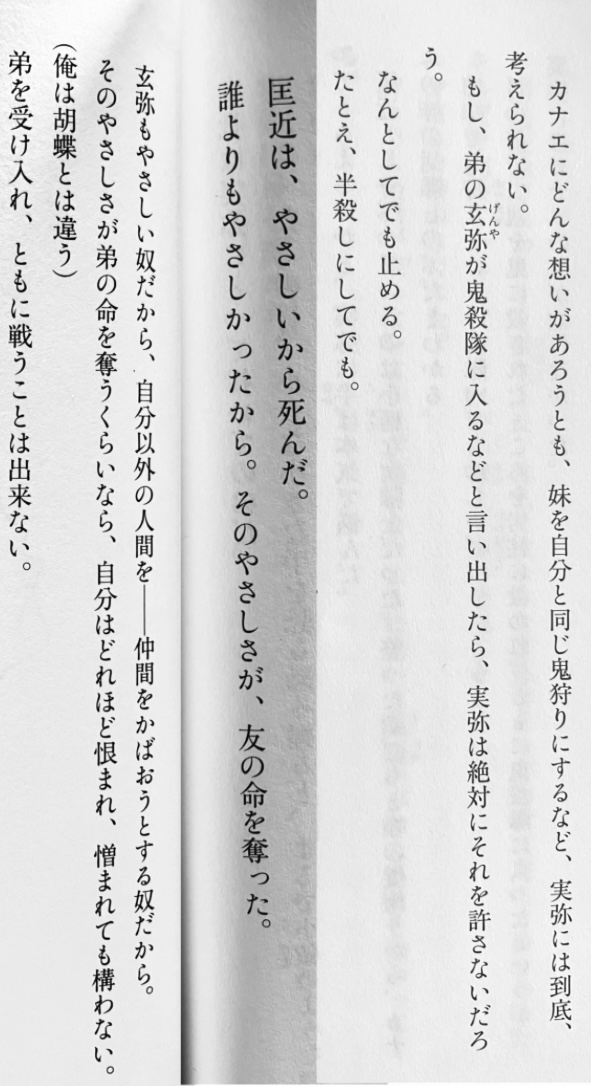 カナエにどんな想いがあろうとも、妹を自分と同じ鬼狩りにするなど、実弥には到底、
考えられない。
もし、弟の玄弥が鬼殺隊に入るなどと言い出したら、実弥は絶対にそれを許さないだろ
げんや
う。
なんとしてでも止める。
たとえ、半殺しにしてでも。
匡近は、やさしいから死んだ。
誰よりもやさしかったから。そのやさしさが、友の命を奪った。
玄弥もやさしい奴だから、自分以外の人間を――仲間をかばおうとする奴だから。
そのやさしさが弟の命を奪うくらいなら、自分はどれほど恨まれ、憎まれても構わない。
(俺は胡蝶とは違う)
弟を受け入れ、ともに戦うことは出来ない。